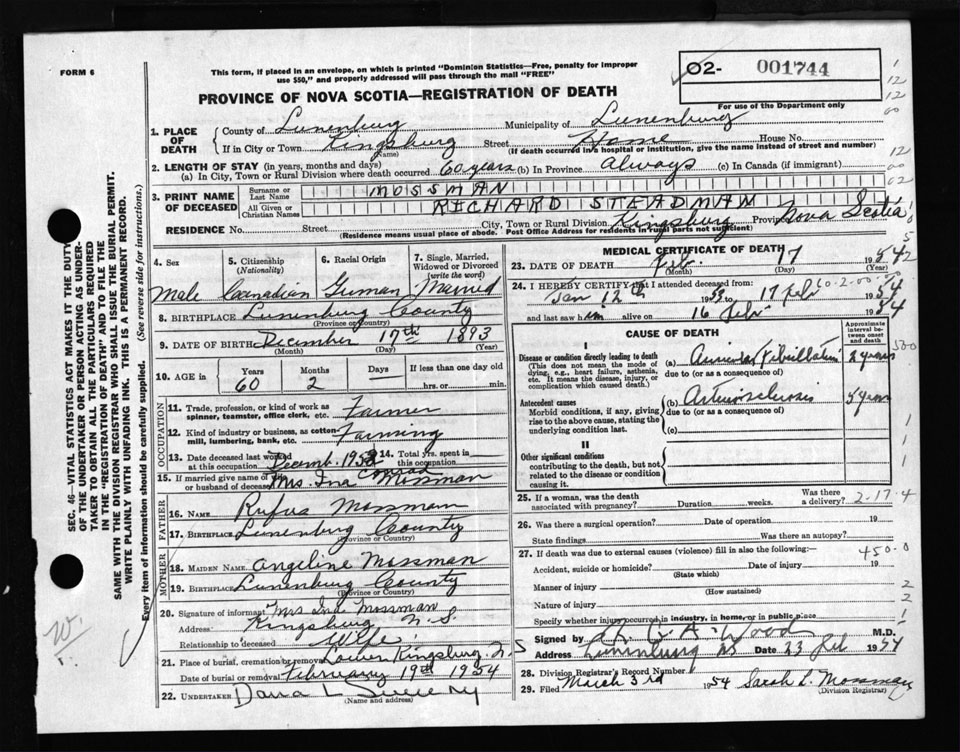 FORM 6
This form, if placed in an envelope, on which is printed "Dominion Statistics—Free, penalty for improper
use $50," and properly addressed will pass through the mail "FREE"
02- 001744
For use of the Department only
PROVINCE OF NOVA SCOTIA—REGISTRATION OF DEATH
1. PLACE OF DEATH
County of Lunenburg Municipality of Lunenburg
If in City or Town Kingsburg Street Home House No.
(Name) (If death occurred in a hospital or institution, give the name instead of street and number)
2. LENGTH OF STAY (in years, months and days)
(a) In City, Town or Rural Division where death occurred 60 years (b) In Province Always (c) In Canada (if immigrant)
3. PRINT NAME OF DECEASED
Surname or Last Name MOSSMAN
All Given or Christian Names RICHARD STEADMAN
RESIDENCE No. Street City, Town or Rural Division Kingsburg Province Nova Scotia
(Residence means usual place of abode. Post Office Address for residents in rural parts not sufficient)
4. Sex
5. Citizenship (Nationality)
6. Racial Origin
7. Single, Married, Widowed or Divorced (write the word)
Male Canadian German Married
8. BIRTHPLACE Lunenburg County
(Province or County)
9. DATE OF BIRTH December 17th 1893
(Month) (Day) (Year)
10. AGE in Years Months Days If less than one day old
60 2 hrs. or min.
OCCUPATION
11. Trade, profession, or kind of work as spinner, teamster, office clerk, etc. Farmer
12. Kind of industry or business, as cotton-mill, lumbering, bank, etc. Farming
13. Date deceased last worked at this occupation Decemb. 1953 14. Total yrs. spent in this occupation
15. If married give name of husband or wife of deceased Mrs. Ina Conrad Mossman
FATHER
16. NAME Rufus Mossman
17. BIRTHPLACE Lunenburg County
(Province or County)
MOTHER
18. MAIDEN NAME Angeline Mossman
19. BIRTHPLACE Lunenburg County
(Province or County)
20. Signature of informant Mrs Ina Mossman
Address Kingsburg N.S.
Relationship to deceased Wife
21. Place of burial, cremation or removal Lower Kingsburg, N.S
Date of burial or removal February 19th 1954
22. UNDERTAKER Dana L Sweeny
(Name and address)
MEDICAL CERTIFICATE OF DEATH
23. DATE OF DEATH Feb. 17 1954
(Month) (Day) (Year)
24. I HEREBY CERTIFY that I attended deceased from
Jan 12th 17 Feb 1954
and last saw him alive on 16 Feb 1954
CAUSE OF DEATH
Approximate interval between onset and death
I
Disease or condition directly leading to death (a) Auricular Fibrillation 2 years
(This does not mean the mode of dying, e.g., heart failure, asthenia, etc. It means the disease, injury, or complication which caused death.)
due to (or as a consequence of)
Antecedent causes (b) Arteriosclerosis 5 years
Morbid conditions, if any, giving rise to the above cause, stating the underlying condition last.
due to (or as a consequence of)
(c)
II
Other significant conditions
contributing to the death, but not related to the disease or condition causing it.
25. If a woman, was the death associated with pregnancy? Duration weeks. Was there a delivery?
2-17-4
26. Was there a surgical operation? Date of operation 19
State findings Was there an autopsy?
27. If death was due to external causes (violence) fill in also the following:—
450-0
Accident, suicide or homicide? Date of injury 19
(State which)
Manner of injury
(How sustained)
Nature of injury
Specify whether injury occurred in industry, in home, or in public place
Signed by A. Wood M.D.
Address Lunenburg NS Date 23 Feb 1954
28. Division Registrar's Record Number
29. Filed March 3rd 1954 Sarah L. Mossman
(Division Registrar)
SEC. 46—VITAL STATISTICS ACT MAKES IT THE DUTY
OF THE UNDERTAKER OR PERSON ACTING AS UNDER-
TAKER TO OBTAIN ALL THE PARTICULARS REQUIRED
IN THE "REGISTRATION OF DEATH" AND TO FILE THE
SAME WITH THE DIVISION REGISTRAR WHO SHALL ISSUE THE BURIAL PERMIT.
WRITE PLAINLY WITH UNFADING INK. THIS IS A PERMANENT RECORD.
Every item of information should be carefully supplied. (See reverse side for instructions.)